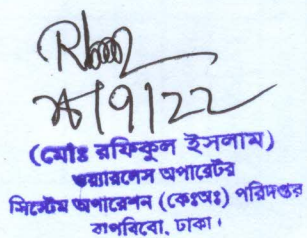 /9/22
(মোঃ রফিকুল ইসলাম)
ওয়্যারলেস অপারেটর
সিস্টেম অপারেশন (কেঃঅঃ) পরিদপ্তর
বাপবিবো, ঢাকা।